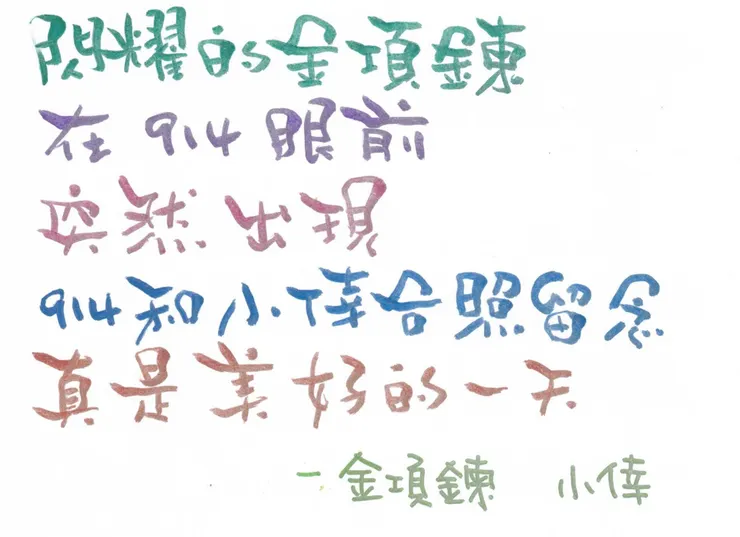 閃耀的金項鍊
在914眼前
突然出現
914和小倖合照留念
真是美好的一天
－金項鍊 小倖